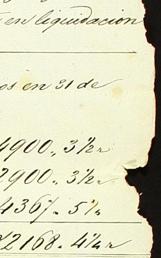 en liquidacion
os en 31 de
4900„ 3½
2900„ 3½
4367„ 5½
2168„ 4½